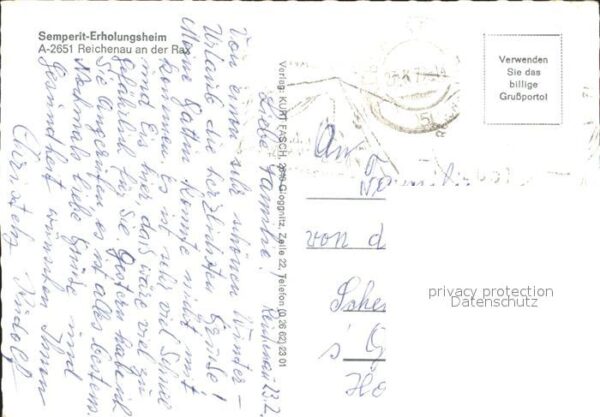 Semperit-Erholungsheim
A-2651 Reichenau an der Rax
Reichenau 23.2.
Liebe Familie!
Von einem sehr schönen Winter-
Urlaub die herzlichsten Grüße!
Meine Gattin konnte nicht mit-
kommen. Es ist sehr viel Schnee
und Eis hier, das wäre viel zu
gefährlich für Sie. Gestern habe ich
Sie angerufen, es ist alles bestens.
Nochmals liebe Grüße und
Gesundheit wünschen Ihnen
Rudolf
Verlag: KURT FASCH, Gloggnitz, Zeile 22, Telefon (0 26 62) 23 01
Verwenden
Sie das
billige
Grußporto!
An
von d
s' G
Ho
privacy protection
Datenschutz